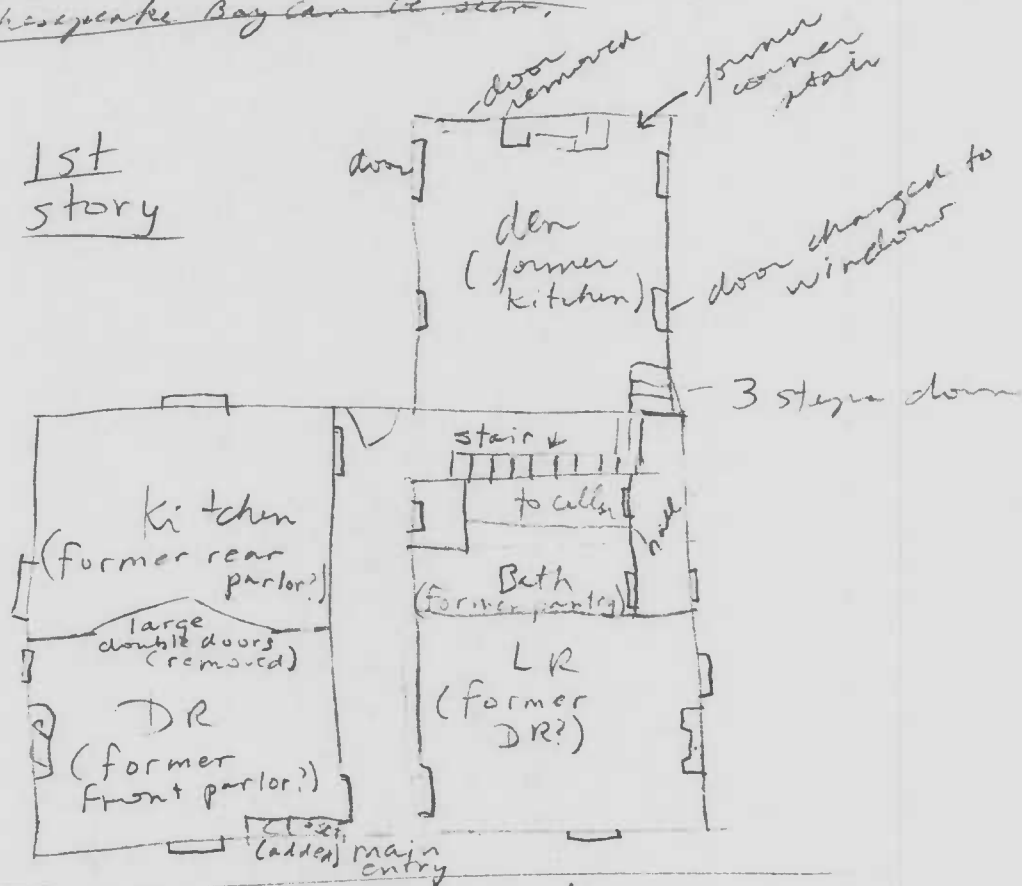 Chesapeake Bay can be seen.
1st
story
door
removed
former
corner
stair
door
den
(former
kitchen)
door changed to
window
3 steps down
stair
to cellar
hall
Kitchen
(former rear
parlor?)
large
double doors
(removed)
Bath
(former pantry)
LR
(former
DR?)
DR
(former
front parlor?)
closet
(added)
main
entry